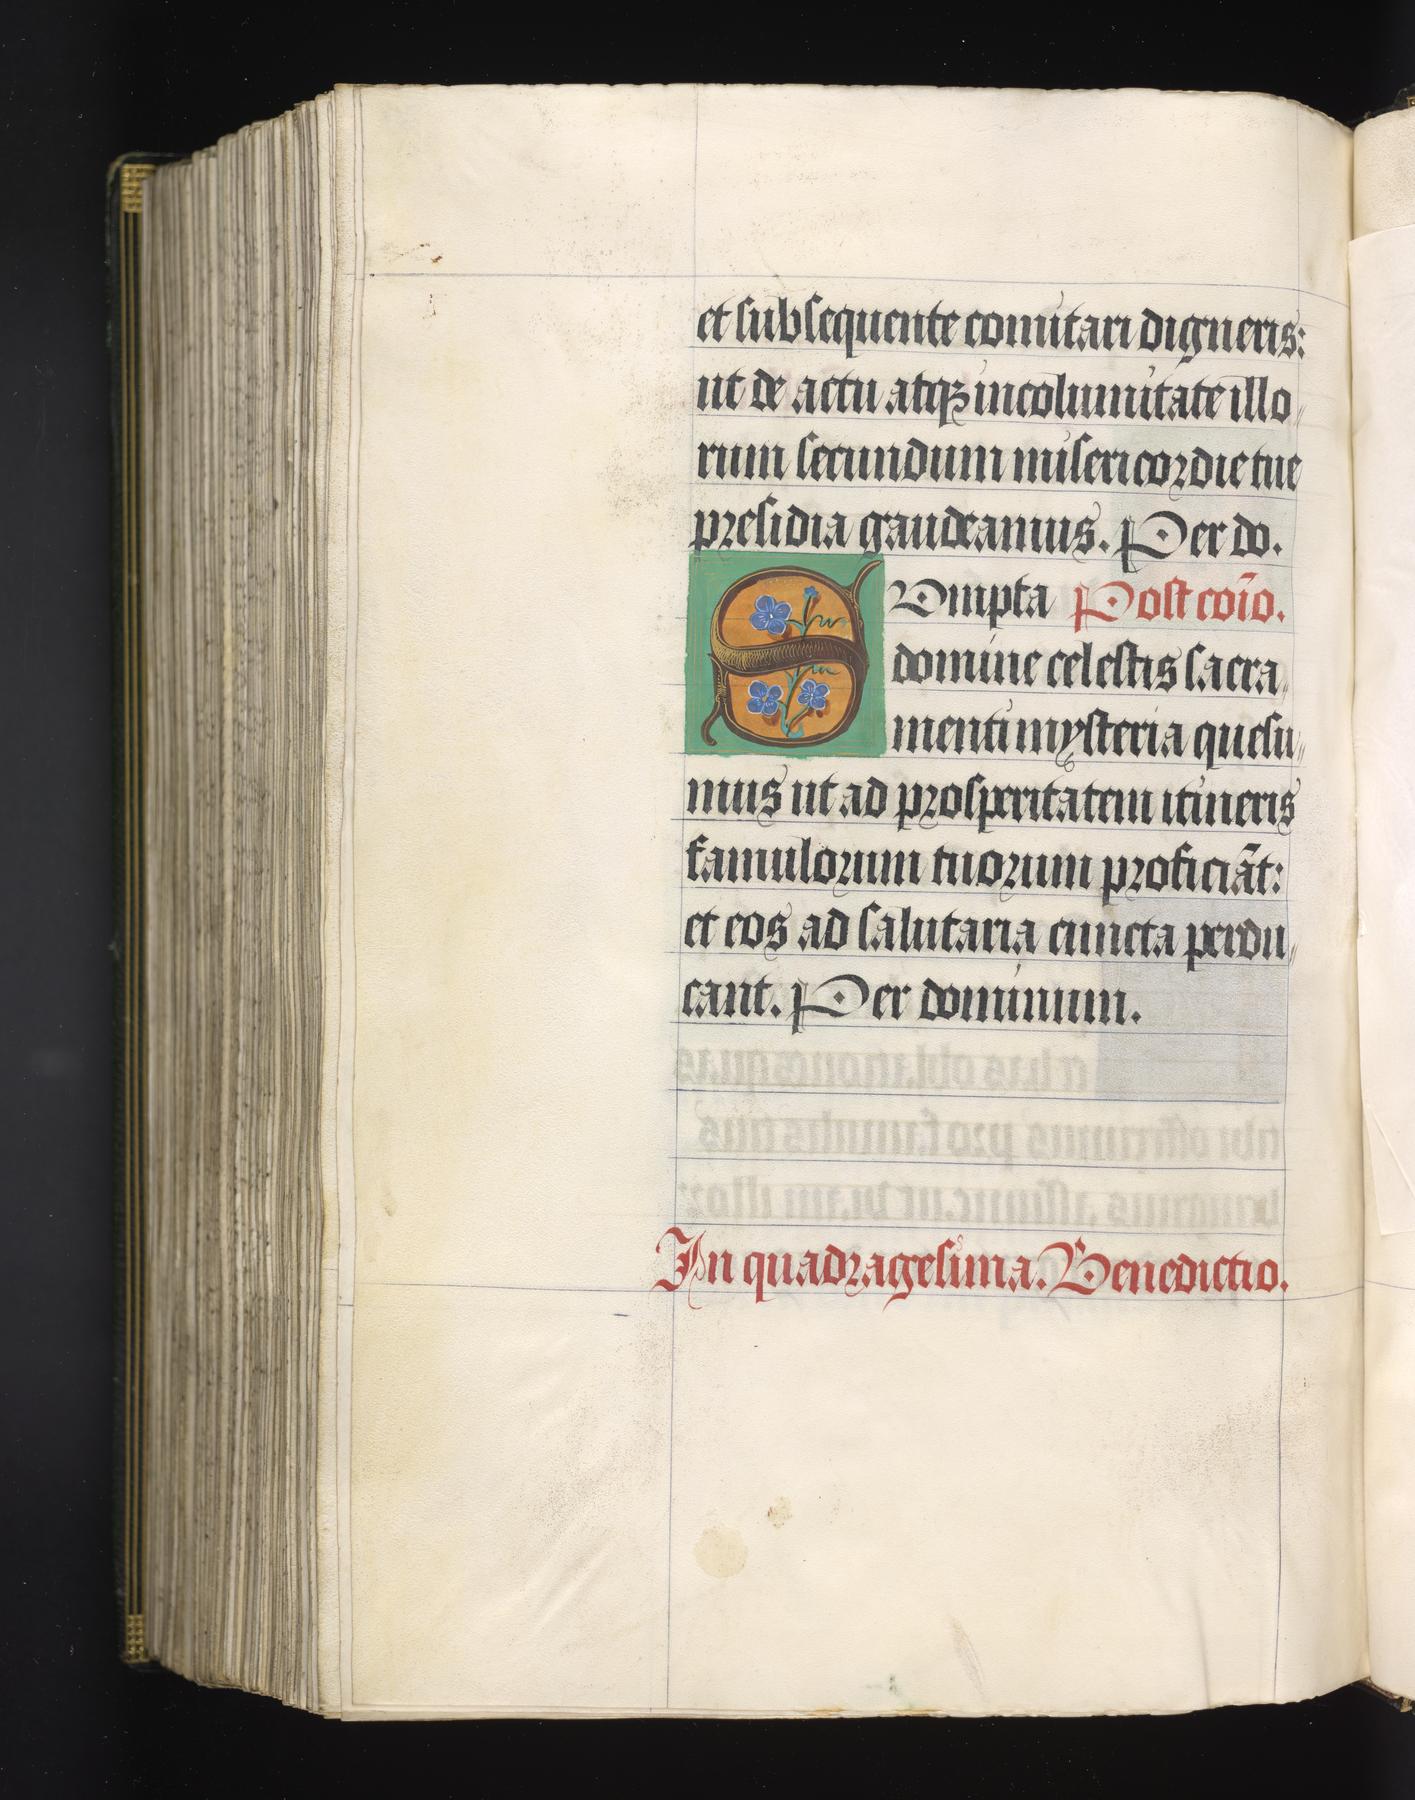 et subsequente comitari digneris:
ut de actu atqꝫ incolumitate illo
rum secundum misericordie tue
presidia gaudeamus. Per do.
SUmpta Post coīo.
domine celestis sacra
menti mysteria quesu
mus ut ad prosperitatem itineris
famulorum tuorum proficiāt:
et eos ad salutaria cuncta perdu
cant. Per dominum.
In quadragesima. Benedictio.